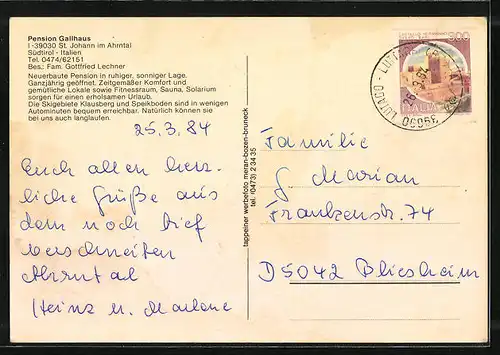 Pension Gallhaus
I-39030 St. Johann im Ahrntal
Südtirol - Italien
Tel. 0474/62151
Bes.: Fam. Gottfried Lechner
Neuerbaute Pension in ruhiger, sonniger Lage.
Ganzjährig geöffnet. Zeitgemäßer Komfort und
gemütliche Lokale sowie Fitnessraum, Sauna, Solarium
sorgen für einen erholsamen Urlaub.
Die Skigebiete Klausberg und Speikboden sind in wenigen
Autominuten bequem erreichbar. Natürlich können sie
bei uns auch langlaufen.
25.3.84
Euch allen herz-
liche Grüße aus
dem noch tief
verschneiten
Ahrntal
Heinz u. Marlene
tappeiner werbefoto meran-bozen-bruneck
tel. (0473) 2 34 35
300
39030 LUTAGO - LUTTACH
Familie
G. Marian
Frankenstr. 74
D5042 Bliesheim